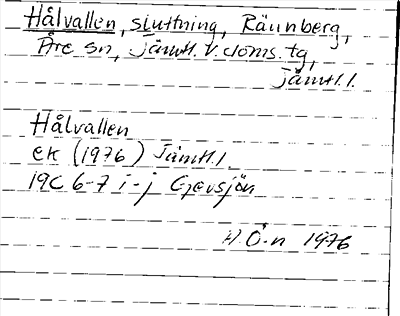 Hålvallen, sluttning, Räunberg,
Åre sn, Jämtl. v. doms. tg,
Jämtl. l.
Hålvallen
ek (1976) Jämtl. l
19C 6-7 i-j Gevsjön
H. Ö-n 1976